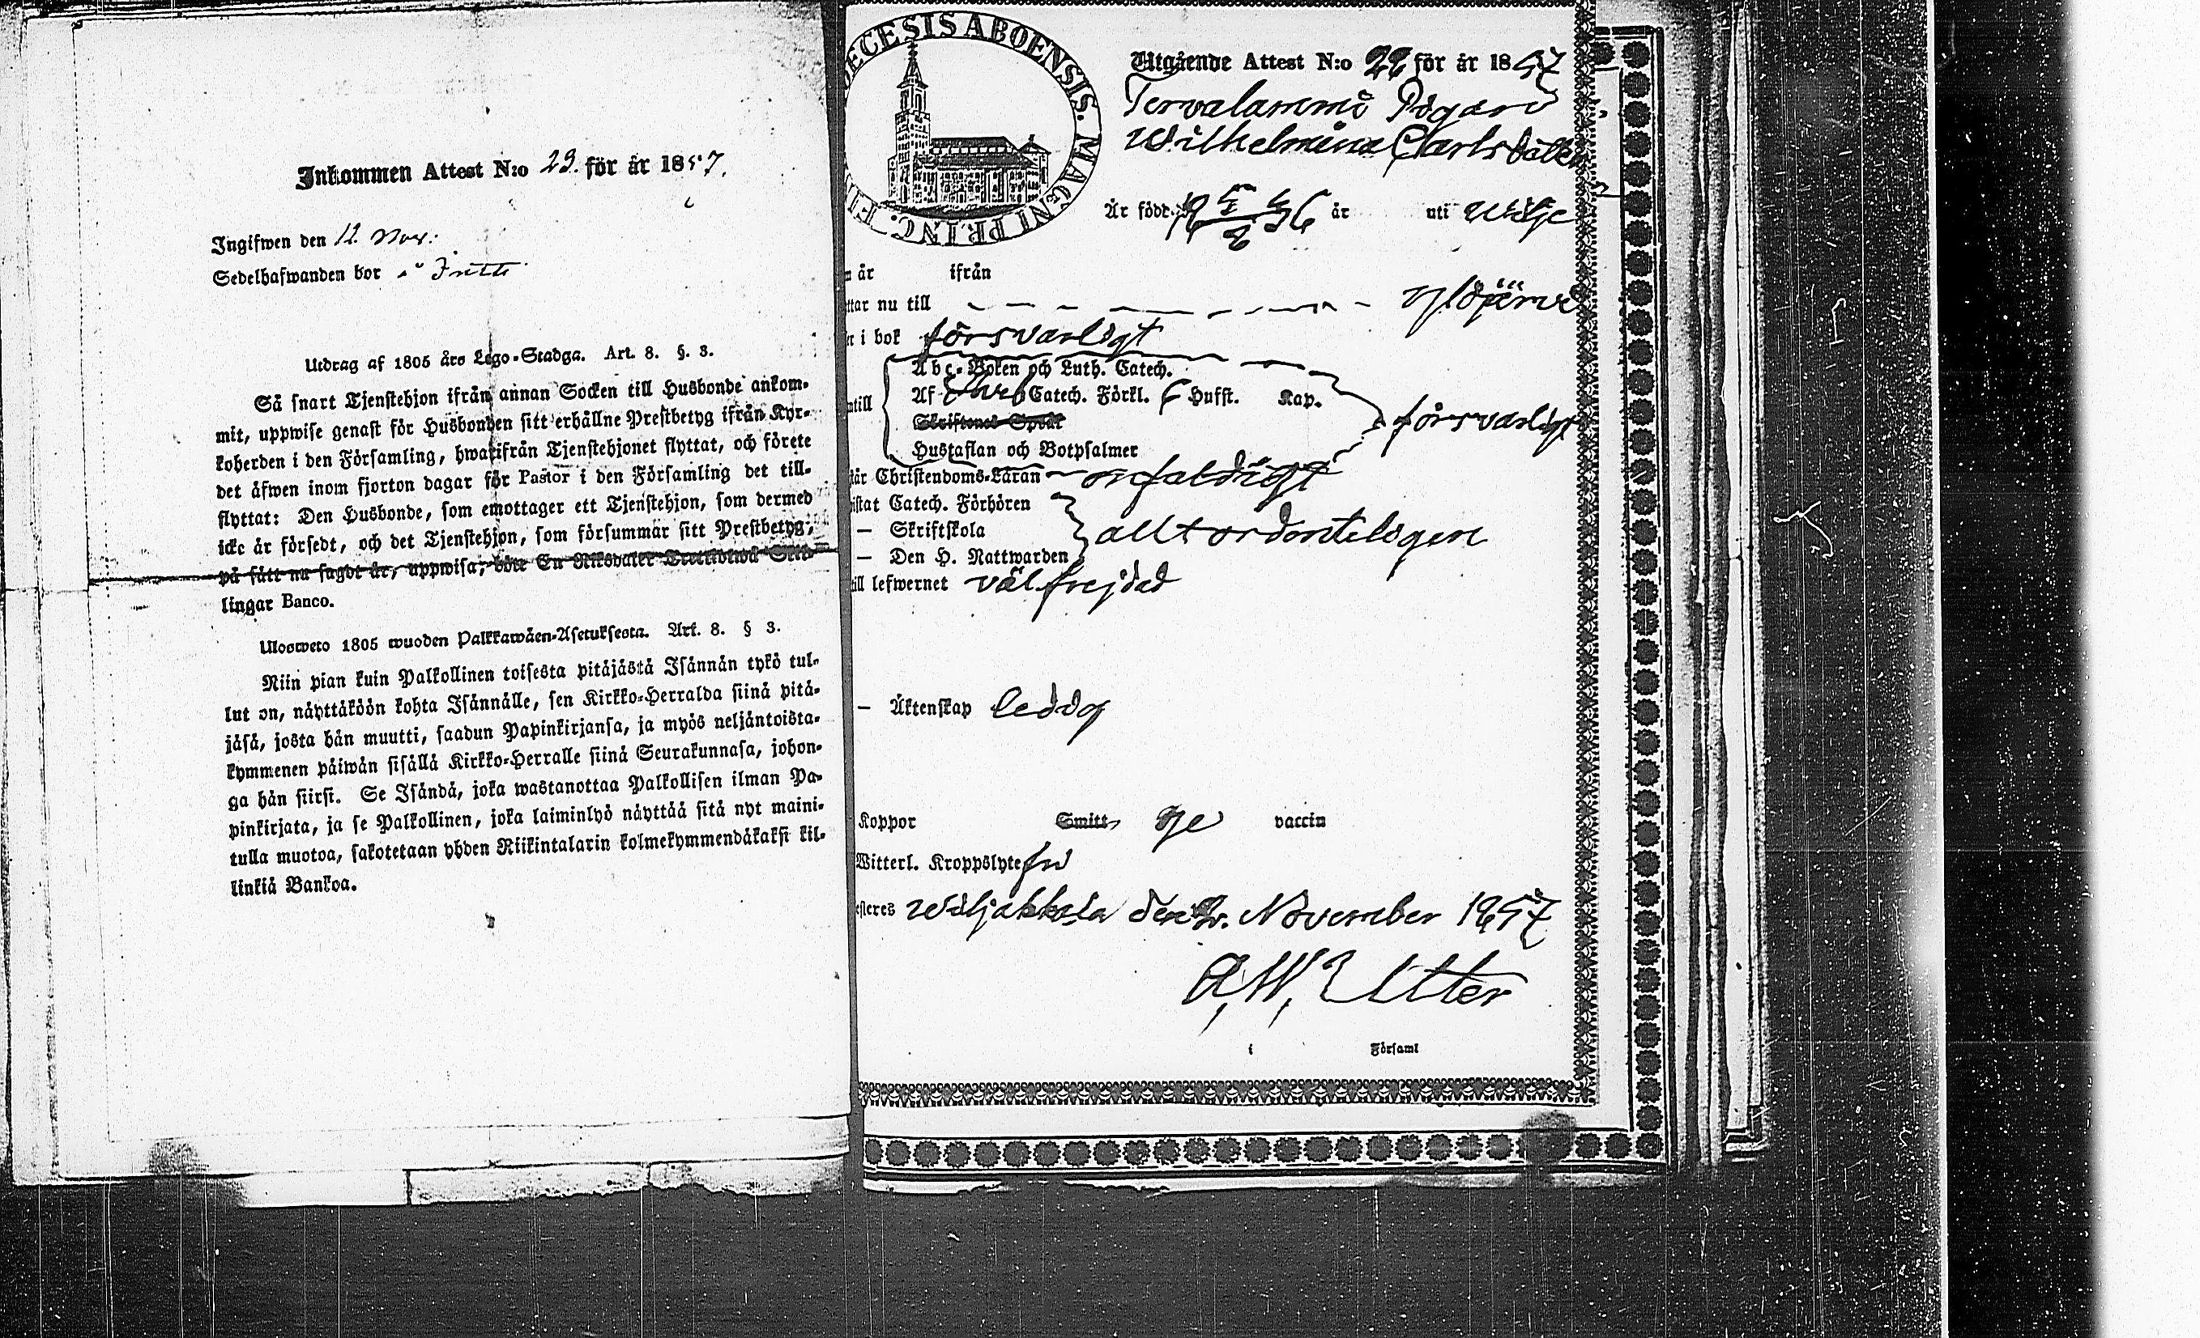 Inkommen Attest N:o 23. för år 1857.
Ingifwen den 12 Nov:
Sedelhafwanden bor i
Utdrag af 1805 års Lego-Stadga. Art. 8. §. 3.
Så snart Tjenstehjon ifrån annan Socken till Husbonde ankom-
mit, uppwise genast för Husbonden sitt erhållne Prestbetyg ifrån Kyr-
koherden i den Församling, hwarifrån Tjenstehjonet flyttat, och förete
det äfwen inom fjorton dagar för Pastor i den Församling det till-
flyttat: Den Husbonde, som emottager ett Tjenstehjon, som dermed
icke är försedt, och det Tjenstehjon, som försummar sitt Prestbetyg,
på sätt nu sagdt är, uppwisa, böte En Riksdaler Trettiotwå Skil-
lingar Banco.
Uloswето 1805 wuoden Palkkawäen-Asetuksesta. Art. 8. § 3.
Niin pian kuin Palkollinen toisesta pitäjästä Isännän tykö tul-
lut on, näyttäköön kohta Isännälle, sen Kirkko-Herralda siinä pitä-
jäsä, josta hän muutti, saadun Papinkirjansa, ja myös neljäntoista-
kymmenen päiwän sisällä Kirkko-Herralle siinä Seurakunnasa, johon-
ga hän siirsi. Se Isändä, joka wastanottaa Palkollisen ilman Pa-
pinkirjata, ja se Palkollinen, joka laiminlyö näyttää sitä nyt maini-
tulla muotoa, sakotetaan yhden Riikintalarin kolmekymmendäkaksi kil-
linkiä Bankoa.
ECESIS ABOENSIS. MAGNI PRINC. FI
Utgående Attest N:o 22 för år 1857
Tervalammi Pigan
Wilhelmina Carlsdotter
Är född 18 5/2 36 år uti
år ifrån
ttar nu till Ylöjärvi
i bok försvarligt
Abc-Boken och Luth. Catech.
Af Catech. Förkl. 6 Hufst. Kap.
ntill försvarligt
Skriftenes Språk
Hustaflan och Botpsalmer
tår Christendoms-Läran enfaldigt
istat Catech. Förhören
— Skriftskola allt ordenteligen
— Den H. Nattwarden
till lefwernet välfrejdad
— Äktenskap ledig
Koppor Smitt, ge vaccin
Witterl. Kroppslyte fri
esteres Wiljakkala den 2. November 1857
A. W. Utter
i Församl